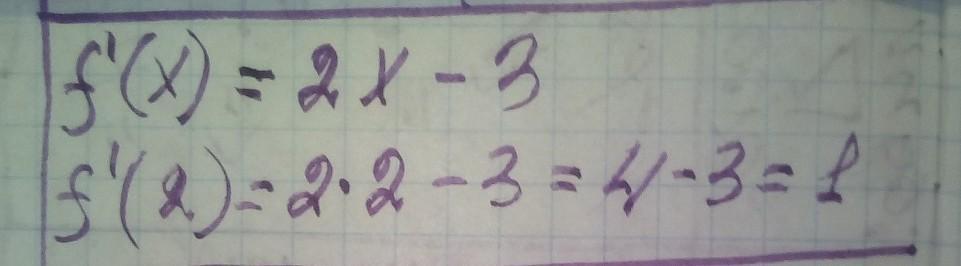 f'(x) = 2x - 3
f'(2) = 2·2 - 3 = 4 - 3 = 1